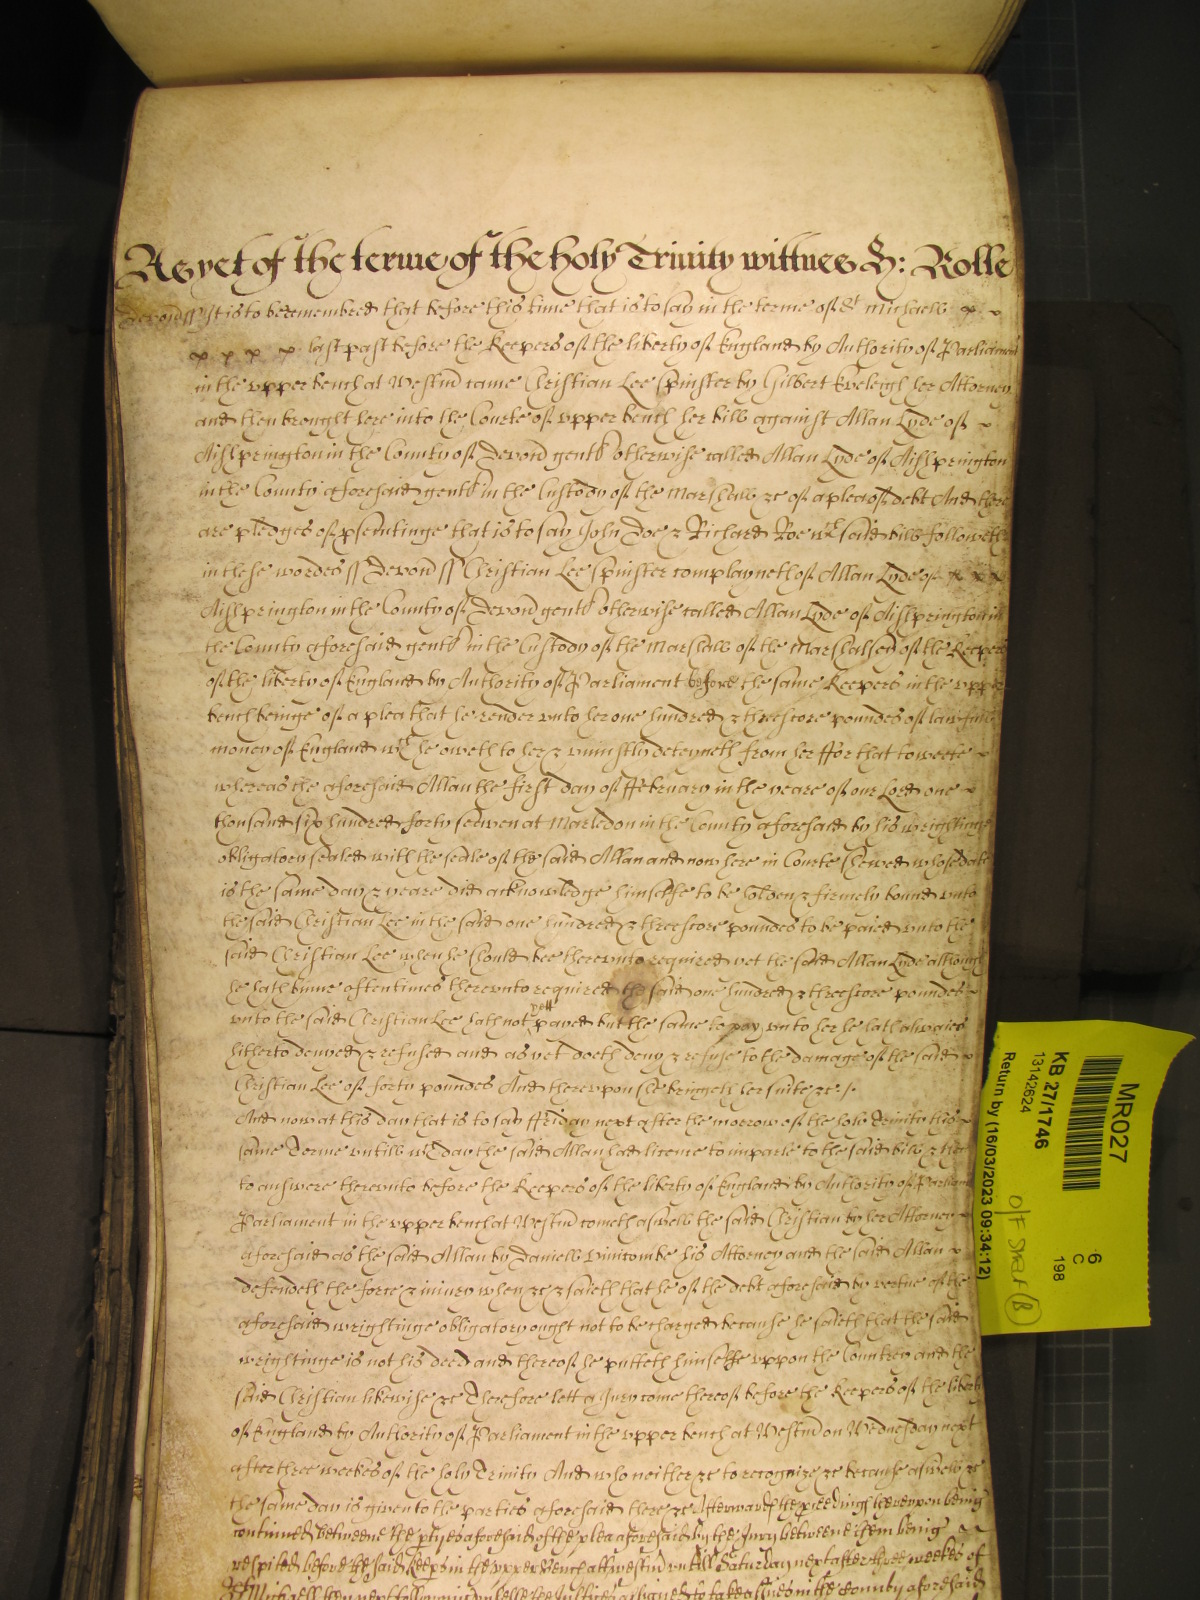 As yet of the terme of the holy Trinity wittnes H: Rolle
Devon ss It is to be remembred that before this time that is to say in the terme of St Michaell x ~
x x x x last past before the Keepers of the liberty of England by Authority of Parliament
in the upper bench at Westm came Christian Lee Spinster by Gilbert Eveleigh her Attorney
and then brought here into the Courte of upper bench her bill against Allan Lyde of ~
Aishprington in the County of Devon gent otherwise called Allan Lyde of Aishprington
in the County aforesaid gent in the Custody of the Marshall &c of a plea of debt And there
are pledges of psentinge that is to say John Doe & Richard Roe wch said bill followeth
in these wordes ss Devon ss Christian Lee Spinster complayneth of Allan Lyde of x x x
Aishprington in the County of Devon gent otherwise called Allan Lyde of Aishprington in
the County aforesaid gent in the Custody of the Marshall of the Marshalsey of the Keepers
of the liberty of England by Authority of Parliament before the same Keepers in the upper
bench beinge of a plea that he render unto her one hundred & threescore poundes of lawfull
money of England wch he oweth to her & uniustly deteyneth from her ffor that to weete ~
whereas the aforesaid Allan the first day of ffebruary in the yeare of our Lord one ~
thousand six hundred forty seaven at Marledon in the County aforesaid by his wrightinge
obligatory sealed with the seale of the said Allan and now here in Courte shewed whose date
is the same day & yeare did acknowledge himselfe to be holden & firmely bound unto
the said Christian Lee in the said one hundred & threescore poundes to be paied unto the
said Christian Lee when he should bee thereunto required yet the said Allan Lyde although
he hath binne oftentimes thereunto required the said one hundred & threescore poundes ~
unto the said Christian Lee hath not yett payed but the same to pay unto her he hath alwaies
hitherto denyed & refused and as yet doeth deny & refuse to the damage of the said ~
Christian Lee of forty poundes And thereupon she bringeth her suite &c :/.
And now at this day that is to say ffriday next after the morrow of the holy Trinity this ~
same Terme untill wch day the said Allan had licence to imparle to the said bill & then
to answere thereunto before the Keepers of the liberty of England by Authority of Parliamt
Parliament in the upper bench at Westm cometh aswell the said Christian by her Attorney ~
aforesaid as the said Allan by Daniell Vinicombe his Attorney and the said Allan ~
defendeth the force & iniury when &c & saieth that he of the debt aforesaid by vertue of the
aforesaid wrightinge obligatory ought not to be charged because he saieth that the said
wrightinge is not his deed and thereof he putteth himselfe uppon the Countrey and the
said Christian likewise &c Therefore lett a Jury come thereof before the Keepers of the liberty
of England by Authority of Parliament in the upper bench at Westm on Wednesday next
after three weekes of the holy Trinity And who neither &c to recognize &c because aswell &c
the same day is given to the parties aforesaid there &c Afterward the pceedings hereupon being
continued betweene the ptyes aforesaid of the plea aforesaid by the Jury betweene them being ~
respited before the said Keeps in the upper Bench att westm untill Saturday next after three weekes of
St Michaell then next following unlesse the Justices assigned to take assises in the County aforesaid
MR027
6
C
198
KB 27/1746
13142624
Return by (16/03/2023 09:34:12)
B